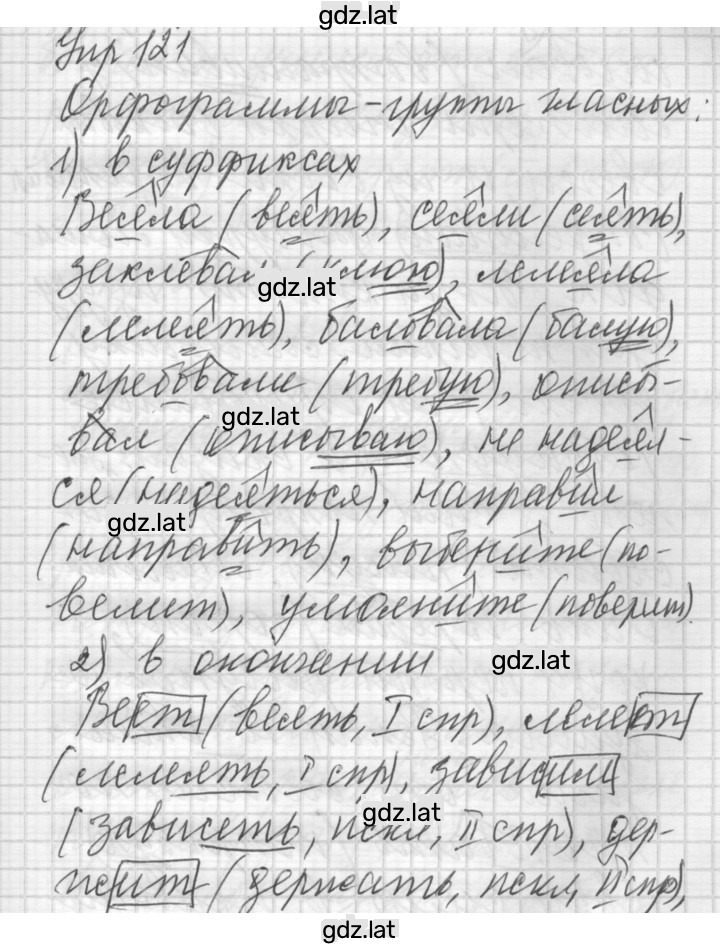 gdz.lat
Упр 121
Орфограммы - группы гласных:
1) в суффиксах
Веяла (веять), сеяли (сеять),
заклевал (клюю), лелеяла
gdz.lat
(лелеять), баловала (балую),
требовали (требую), описы-
gdz.lat
вал (описываю), не надеял-
ся (надеяться), направил
gdz.lat
(направить), выбените (по-
велит), умолните (поверит).
2) в окончании
gdz.lat
Веет (веять, I спр), лелеет
(лелеять, I спр), зависим
gdz.lat
(зависеть, искл, II спр), дер-
жит (держать, искл, II спр),
gdz.lat